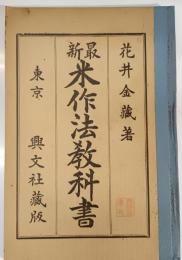 花井金藏著
最新
米作法教科書
東京 興文社藏版